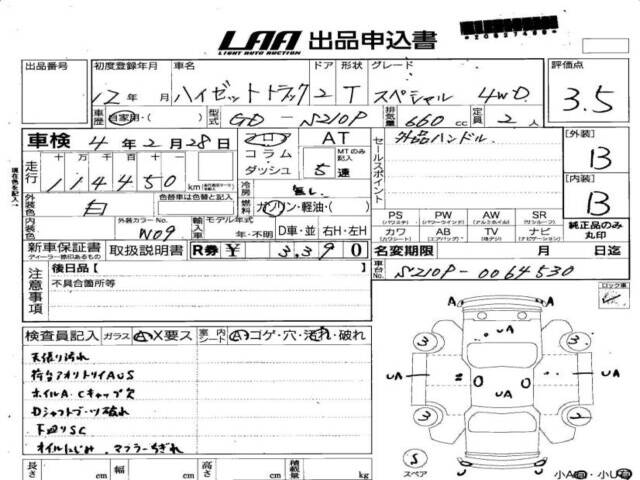 LAA 出品申込書
LIGHT AUTO AUCTION
出品番号 初度登録年月 車名 ドア 形状 グレード 評価点
12年 月 ハイゼットトラック 2 T スペシャル 4WD 3.5
車歴 自家用・( ) 型式 GD - S210P 排気量 660 cc 定員 2 人
車検 4年2月28日 フロア AT 外品ハンドル
コラム・ダッシュ MTのみ記入 5速 セールスポイント
走行 十 万 千 百 十 一
114450 km
冷房 無し
[外装] B
[内装] B
外装色 白 色替車は色替と記入 燃料 ガソリン・軽油・( )
外装カラーNo. W09 輸入車 モデル年式 年・不明 D車・並 右H・左H
PS PW AW SR
(パワステ) (パワーウインド) (アルミホイル) (サンルーフ)
カワ AB TV ナビ
(カワシート) (エアバッグ) (テレビ) (ナビゲーション)
純正品のみ丸印
新車保証書 取扱説明書 R券 ¥ 3,390 名変期限 月 日迄
ディーラー捺印あるもの
車台No. S210P-0064530
注意事項 後日品 [ ]
不具合箇所等
現在色を記入。
ロック車
検査員記入 ガラス A X要ス 室内シート A コゲ・穴・汚れ・破れ
天張り汚れ
荷台アオリトリイAUS
ホイルA.Cキャップ欠
Dシャフトブーツ破れ
下廻りSC
オイルにじみ マフラーちぎれ
UA A
3 3
UA UA
3 3
UA
S
スペア
小A・小U
長さ cm 幅 cm 高さ cm 積載量 kg